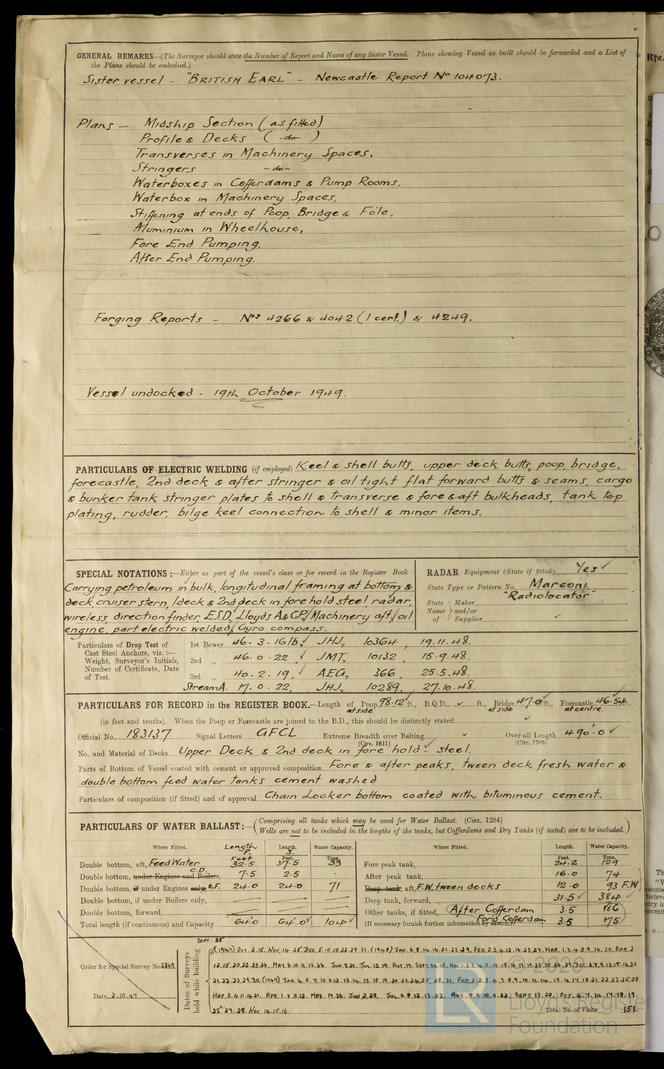 GENERAL REMARKS—(The Surveyor should state the Number of Report and Name of any Sister Vessel. Plans showing Vessel as built should be forwarded and a List of
the Plans should be embodied.)
Sister vessel - "BRITISH EARL" - Newcastle Report No 104073.
Plans — Midship Section (as fitted)
Profile & Decks ( -do- )
Transverses in Machinery Spaces,
Stringers -do-
Waterboxes in Cofferdams & Pump Rooms,
Waterbox in Machinery Spaces,
Stiffening at ends of Poop, Bridge & Fo'le,
Aluminium in Wheelhouse,
Fore End Pumping.
After End Pumping.
Forging Reports - Nos 4266 & 4042 (1 cert.) & 4249.
Vessel undocked - 19th October 1949.
PARTICULARS OF ELECTRIC WELDING (if employed) Keel & shell butts, upper deck butts, poop, bridge,
forecastle, 2nd deck & after stringer & oil tight flat forward butts & seams, cargo
& bunker tank stringer plates to shell & transverse & fore & aft bulkheads, tank top
plating, rudder, bilge keel connection to shell & minor items.
SPECIAL NOTATIONS:—Either as part of the vessel's class or for record in the Register Book
Carrying petroleum in bulk, longitudinal framing at bottom &
deck, cruiser stern, 1 deck & 2nd deck in fore hold steel, radar,
wireless direction finder, E.S.D. Lloyds A & CP. Machinery aft, oil
engine, part electric welded, Gyro compass.
RADAR Equipment (State if fitted) Yes
State Type or Pattern No. Marconi
"Radiolocator"
State Name of Maker and/or Supplier
Particulars of Drop Test of Cast Steel Anchors, viz.:— Weight, Surveyor's Initials, Number of Certificate, Date of Test.
1st Bower 46. 3. 16 lb, JHJ, 10364, 19.11.48.
2nd „ 46. 0. 22, JMT, 10132, 15.9.48.
3rd „ 40. 2. 19, AEG, 366, 25.5.48.
Stream A. 17. 0. 22, JHJ, 10289, 27.10.48.
PARTICULARS FOR RECORD in the REGISTER BOOK.—Length of Poop at side 98.12 ft., R.Q.D. ft., Bridge at side 47.0 ft., Forecastle at centre 46.5 ft.
(in feet and tenths). When the Poop or Forecastle are joined to the B.D., this should be distinctly stated
Official No. 183137 Signal Letters GFCL Extreme Breadth over Belting (Circ. 1611) Over-all Length (Circ. 1703) 490.0
No. and Material of Decks Upper Deck & 2nd deck in fore hold - steel.
Parts of Bottom of Vessel coated with cement or approved composition Fore & after peaks, tween deck fresh water &
double bottom feed water tanks cement washed
Particulars of composition (if fitted) and of approval Chain Locker bottom coated with bituminous cement.
PARTICULARS OF WATER BALLAST:—(Comprising all tanks which may be used for Water Ballast. (Circ. 1284)
Wells are not to be included in the lengths of the tanks, but Cofferdams and Dry Tanks (if tested) are to be included.)
Where Fitted. Length P. Length. S. Water Capacity. Where Fitted. Length. Water Capacity.
Feet Feet. Tons. Feet. Tons.
Double bottom, aft, Feed Water 32.5 37.5 33 Fore peak tank, 24.2 129
Double bottom, under Engines and Boilers, C.D. 7.5 2.5 After peak tank, 16.0 74
Double bottom, if under Engines only, O.F. 24.0 24.0 71 Deep tank, aft, F.W. tween decks 12.0 93 F.W
Double bottom, if under Boilers only, Deep tank, forward, 31.5 384
Double bottom, forward, Other tanks, if fitted, After Cofferdam 3.5
Total length (if continuous) and Capacity 64.0 64.0 104 (If necessary furnish further information by sketch) Ford Cofferdam 3.5 175
Order for Special Survey No.
Date 2.10.47
Dates of Surveys held while building
Total No. of Visits 151.
© 2020
LR
Lloyd's Register
Foundation